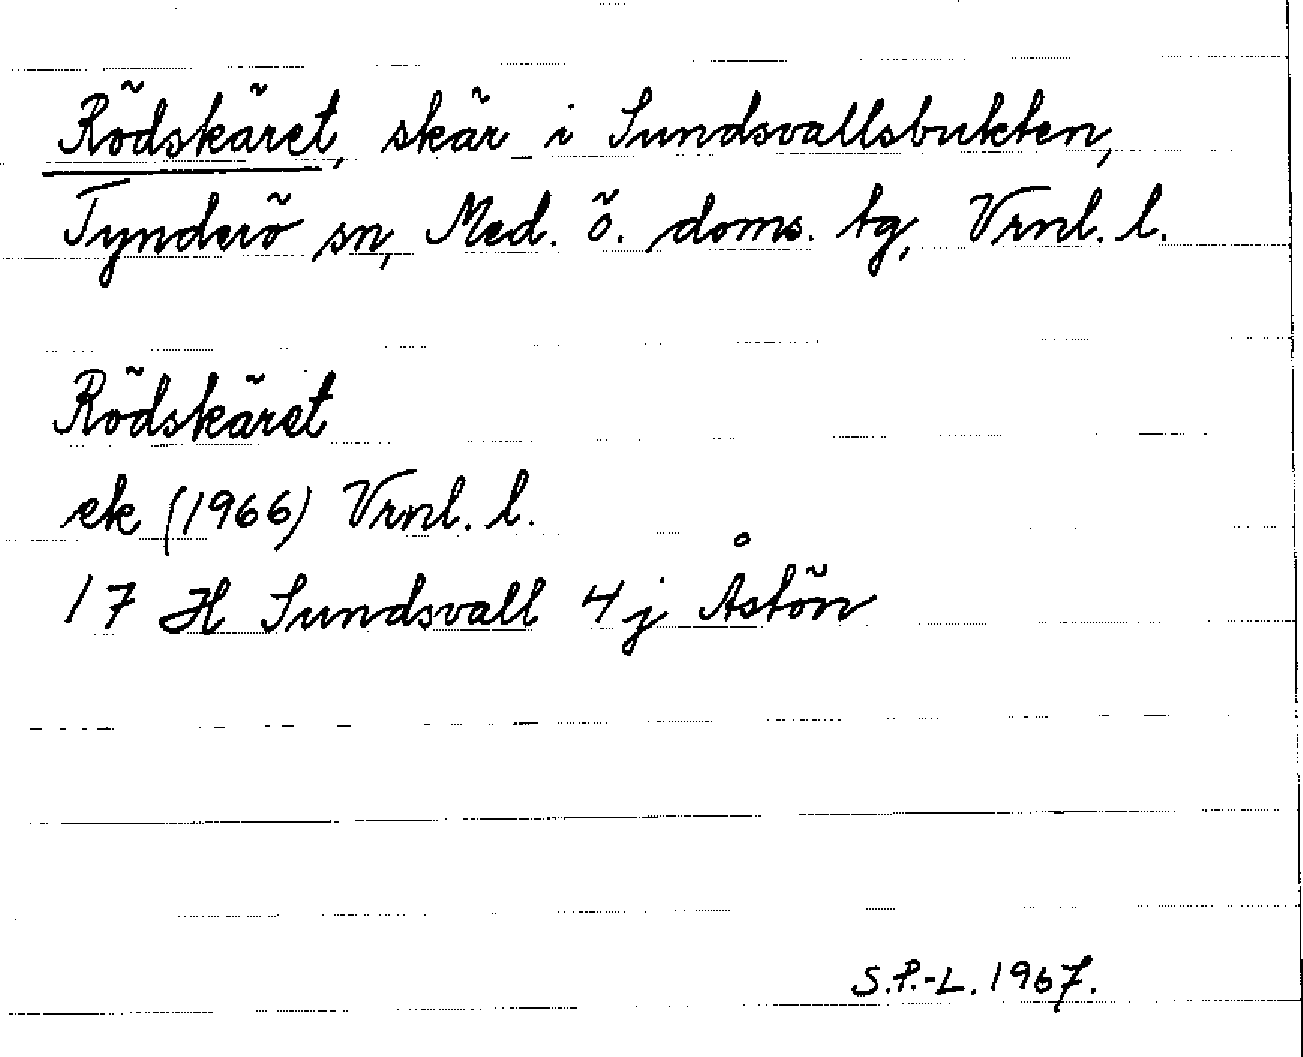 Rödskäret, skär i Sundsvallsbukten,
Tynderö sn, Med. ö. doms. tg, Vrnl. l.
Rödskäret
ek (1966) Vrnl. l.
17 H Sundsvall 4j Åstön
S.P.-L. 1967.